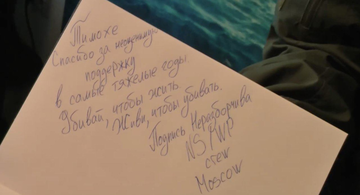 Тимохе
Спасибо за неоценимую
поддержку
в самые тяжелые годы.
Убивай, чтобы жить
Живи, чтобы убивать.
Подпись Неразборчива
NS/WP
crew
Moscow